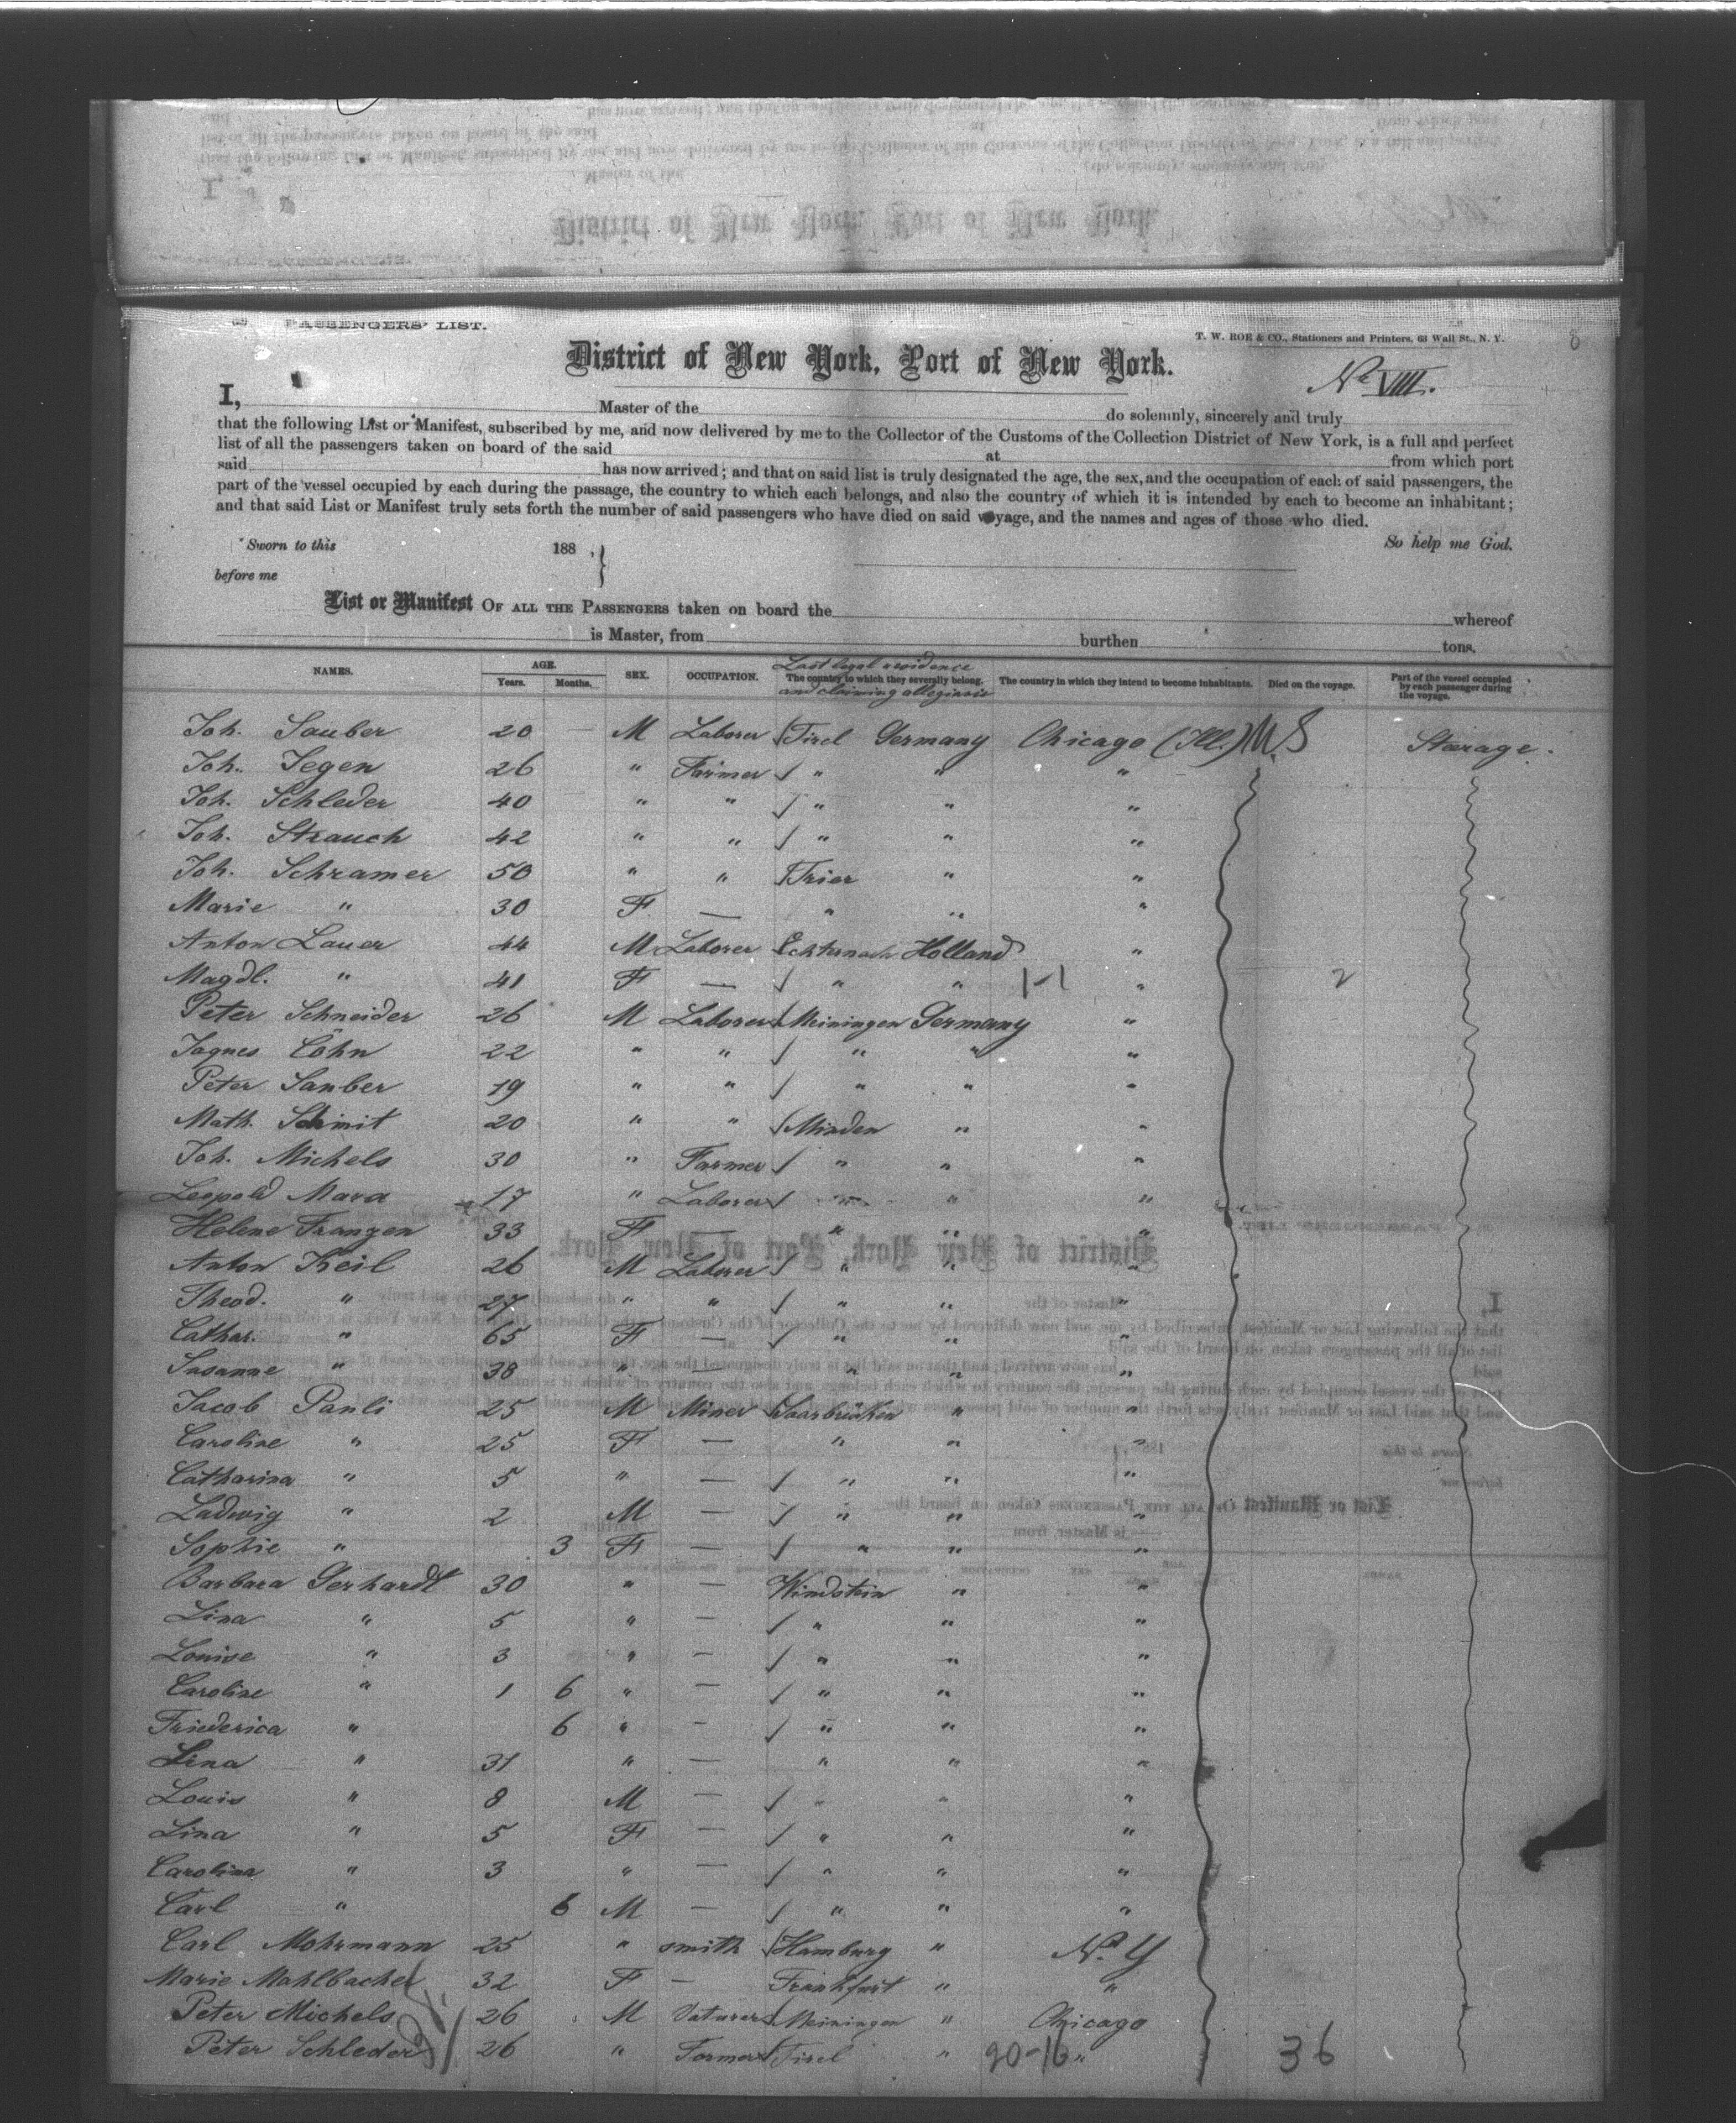 PASSENGERS' LIST.
T. W. ROE & CO., Stationers and Printers, 63 Wall St., N. Y.
8
District of New York, Port of New York.
No VIII.
I, Master of the do solemnly, sincerely and truly
that the following List or Manifest, subscribed by me, and now delivered by me to the Collector of the Customs of the Collection District of New York, is a full and perfect
list of all the passengers taken on board of the said at from which port
said has now arrived; and that on said list is truly designated the age, the sex, and the occupation of each of said passengers, the
part of the vessel occupied by each during the passage, the country to which each belongs, and also the country of which it is intended by each to become an inhabitant;
and that said List or Manifest truly sets forth the number of said passengers who have died on said voyage, and the names and ages of those who died.
Sworn to this 188 , So help me God.
before me
List or Manifest OF ALL THE PASSENGERS taken on board the whereof
is Master, from burthen tons.
NAMES. AGE. Years. Months. SEX. OCCUPATION. Last legal residence The country to which they severally belong. and claiming allegiance The country in which they intend to become inhabitants. Died on the voyage. Part of the vessel occupied by each passenger during the voyage.
Joh. Sauber 20 — M Laborer Tirel Germany Chicago (Ill.) U.S Steerage.
Joh. Jegen 26 " Farmer " " "
Joh. Schleder 40 " " " " "
Joh. Strauch 42 " " " " "
Joh. Schramer 50 " " Trier " "
Marie " 30 F — " " "
Anton Lauer 44 M Laborer Echternach Holland "
Magdl. " 41 F — " " 1-1 " 2
Peter Schneider 26 M Laborer Meiningen Germany "
Jagnes Cöhn 22 " " " " "
Peter Sanber 19 " " " " "
Math. Schmit 20 " " Minden " "
Joh. Michels 30 " Farmer " " "
Leopold Mara 17 " Laborer " " "
Helene Frangen 33 F — " " "
Anton Keil 26 M Laborer " " "
Theod. " 27 " " " " "
Cathar. " 65 F — " " "
Susanne " 38 " — " " "
Jacob Panli 25 M Miner Saarbrücken " "
Caroline " 25 F — " " "
Catharina " 5 " — " " "
Ludwig " 2 M — " " "
Sophie " 3 F — " " "
Barbara Gerhardt 30 " — Windstein " "
Lina " 5 " — " " "
Louise " 3 " — " " "
Caroline " 1 6 " — " " "
Friederica " 6 " — " " "
Lina " 31 " — " " "
Louis " 8 M — " " "
Lina " 5 F — " " "
Carolina " 3 " — " " "
Carl " 6 M — " " "
Carl Mohrmann 25 " smith Hamburg " N. Y
Marie Mahlbacher 32 F — Frankfurt " "
Peter Michels 26 M Meiningen " Chicago
Peter Schleder 26 " Farmer Tirel " 20-16 " 36